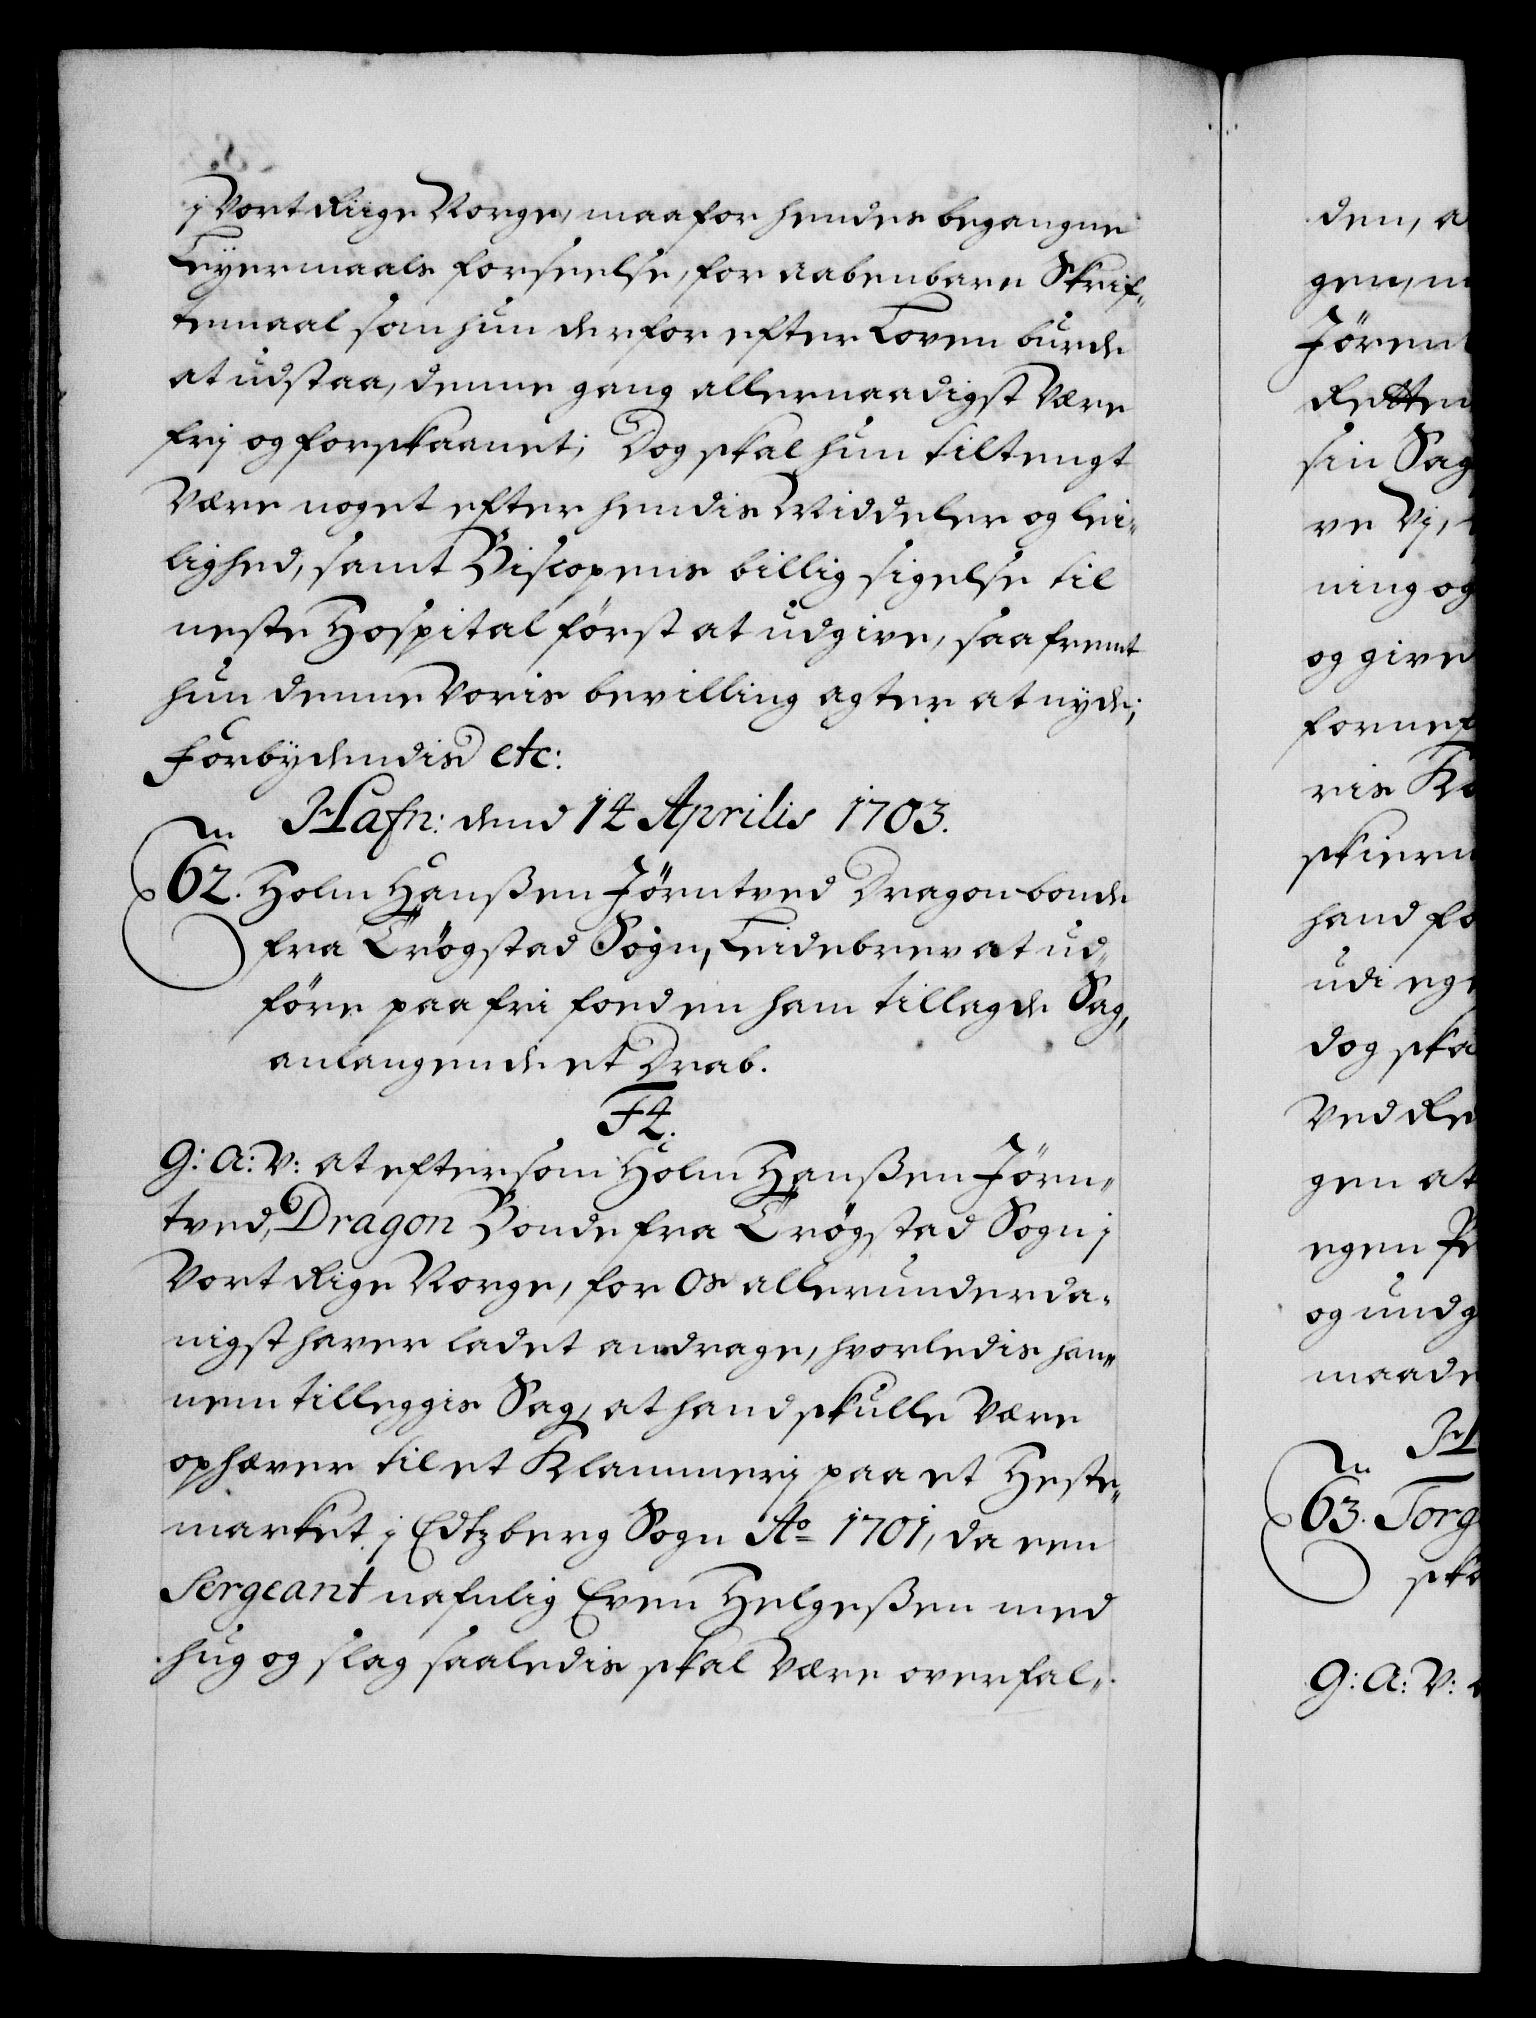 j Vort Riige Norge, maa for hendes begangne
Leyermaals forseelse, for aabenbare Skrif-
temaal som hun derfor efter Loven burde
at udstaa, denne gang allernaadigst være
frj og forskaanet; Dog skal hun tiltengt
være noget efter hendis Middeler og lei-
lighed, samt Biscopens billig sigelse til
neste Hospital først at udgive, saafremt
hun denne Voris bevilling agter at nyde;
Forbydendis etc:
Hafn: dend 14 Aprilis 1703.
62. Holm Hanßen Jørntved Dragon-bonde
fra Trøgstad Sogn, Leidebrev at ud-
føre paa fri foed en ham tillagde Sag,
anlangende et Drab.
F4.
G: A: V: at eftersom Holm Hanßen Jørn-
tved, Dragon Bonde fra Trøgstad Sogn j
Vort Rige Norge, for Os allerunderda-
nigst haver ladet andrage, hvorledis han-
nem tilleggis Sag, at hand skulle være
ophæver til et Klammerj paa et Heste-
market j Edtzberg Sogn Ao 1701, da een
Sergeant nafnlig Even Helgeßen med
hug og slag saaledis skal være overfal-
den, a
gen, m
Jørent
Retten
sin Sag
ve Vj,
ning og
og gived
fornef
ris Ko
skierm
hand fo
udi ege
dog ska
Ved Re
gen at
egen Pe
og undg
maade
H
63. Torg
ska
G: A: V: